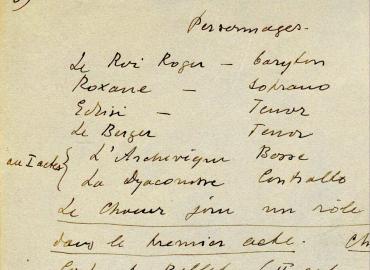 Personnages.
Le Roi Roger — baryton
Roxane — Soprano
Edrisi — Tenor
Le Berger Tenor
au I acte { L'Archevêque Basse
La Dyaconesse Contralto
Le Choeur joue un rôle
dans le premier acte.
Corps de Ballet